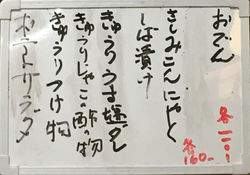 おでん
各100
さしみこんにゃく
しば漬け
各160
きゅうりうま塩ダレ
きゅうりしゃこの酢の物
きゅうりつけ物
ポテトサラダ